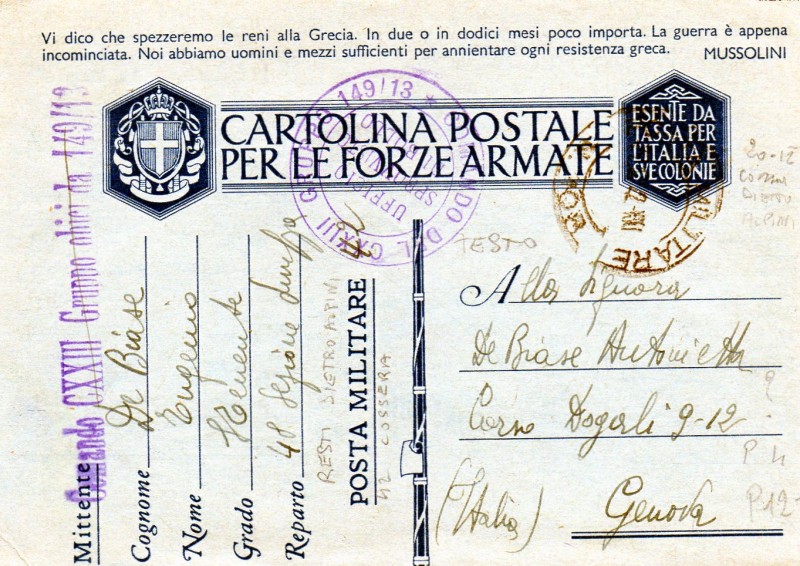 Vi dico che spezzeremo le reni alla Grecia. In due o in dodici mesi poco importa. La guerra è appena
incominciata. Noi abbiamo uomini e mezzi sufficienti per annientare ogni resistenza greca.
MUSSOLINI
CARTOLINA POSTALE
PER LE FORZE ARMATE
ESENTE DA
TASSA PER
L'ITALIA E
SVE COLONIE
COMANDO DEL CXXIII GRUPPO 149/13
UFFICIO
MILITARE
20-12
Comando CXXIII Gruppo obici da 149/13
Mittente
Cognome De Biase
Nome Eugenio
Grado Tenente
Reparto 48 Sezione
RESTI DIETRO ALPINI
POSTA MILITARE 22
42 COSSERIA
TESTO
Alla Signora
De Biase Antonietta
Corso Dogali 9-12
(Italia) Genova
?
P 4
P12